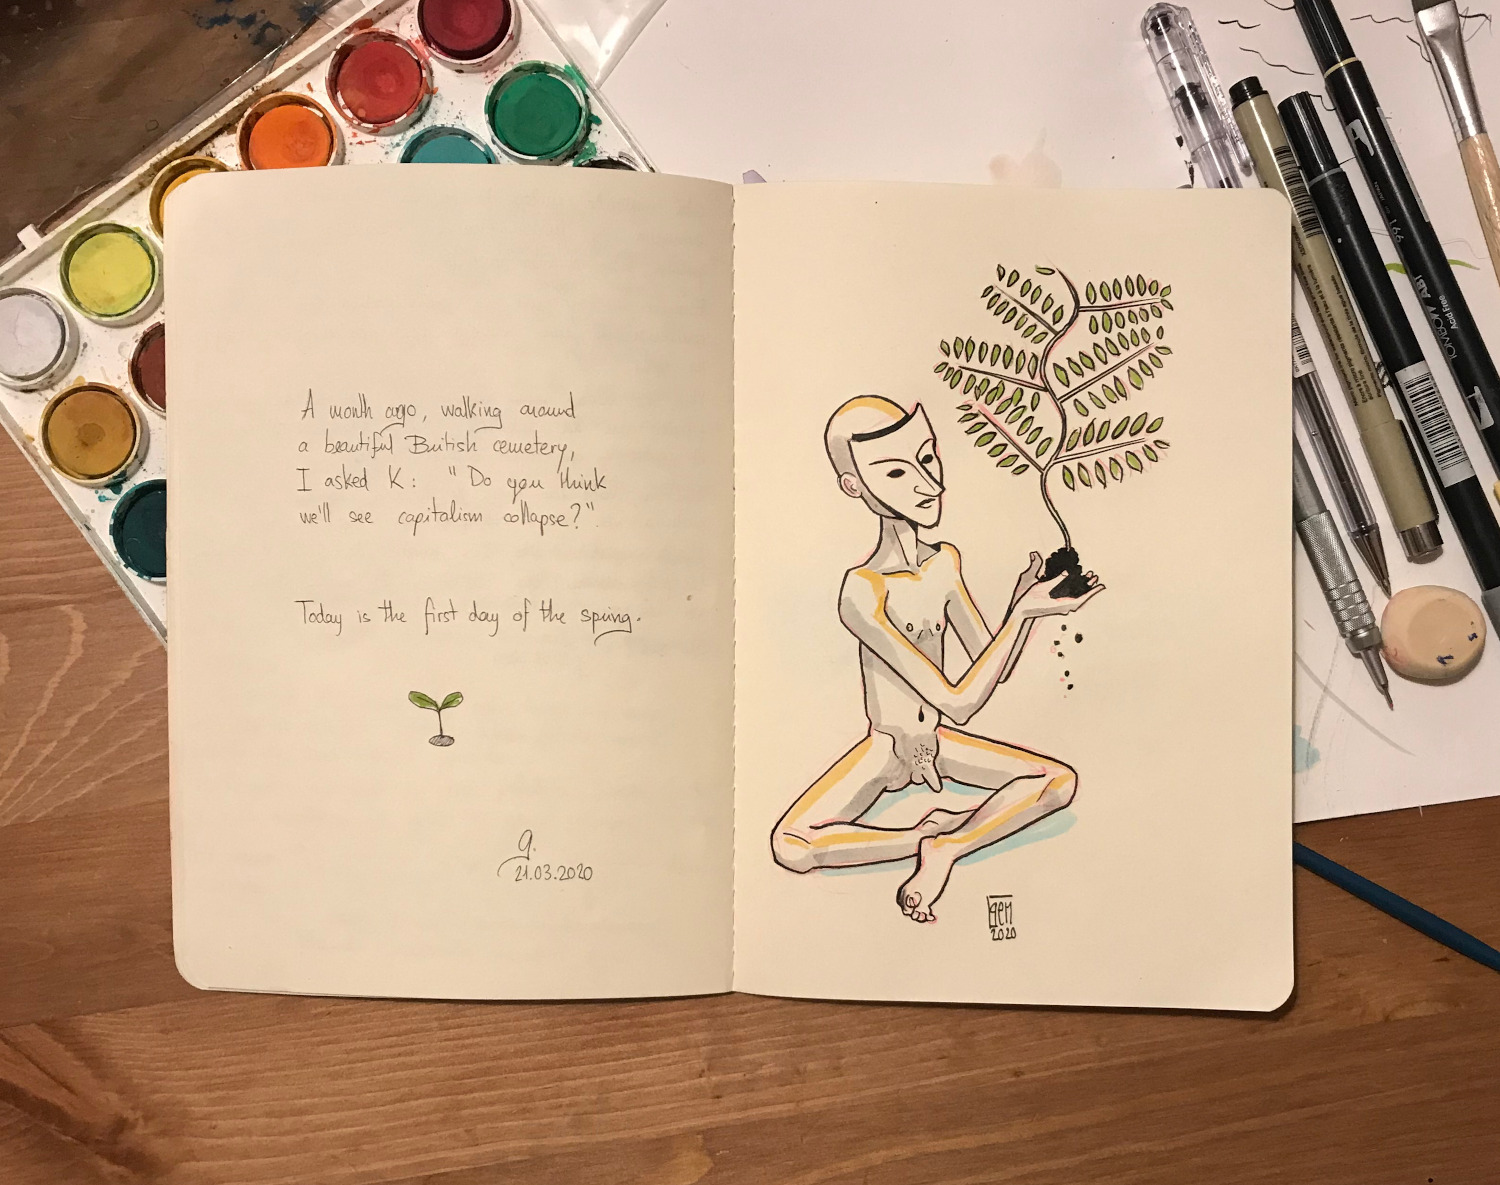 A month ago, walking around
a beautiful British cemetery,
I asked K: "Do you think
we'll see capitalism collapse?".
Today is the first day of the spring.
g.
21.03.2020
gen
2020
TOMBOW ABT
Acid Free